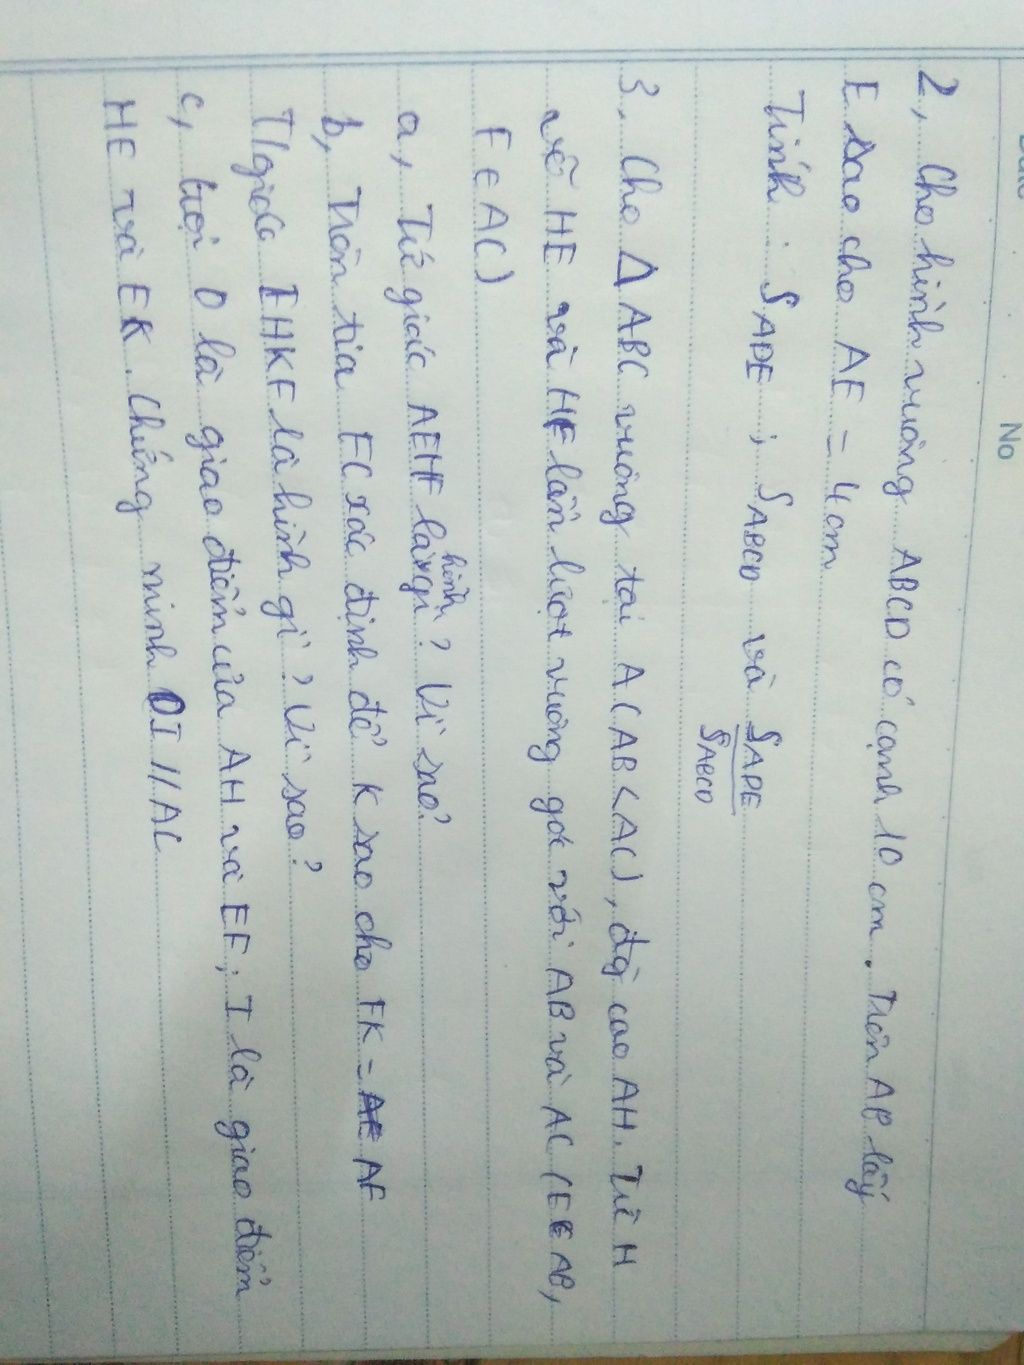 No
2, Cho hình vuông ABCD có cạnh 10 cm. Trên AB lấy
E sao cho AE = 4cm
Tính : SADE ; SABCD và SADE / SABCD
3, Cho Δ ABC vuông tại A (AB < AC), đg cao AH. Từ H
vẽ HE và HF lần lượt vuông góc với AB và AC (E∈AB,
F∈AC)
a, Tứ giác AEHF là hình gì? Vì sao?
b, Trên tia FC xác định để K sao cho FK = AF
T/giác EHKF là hình gì? Vì sao?
c, Gọi O là giao điểm của AH và EF; I là giao điểm
HF và EK. Chứng minh OI // AC